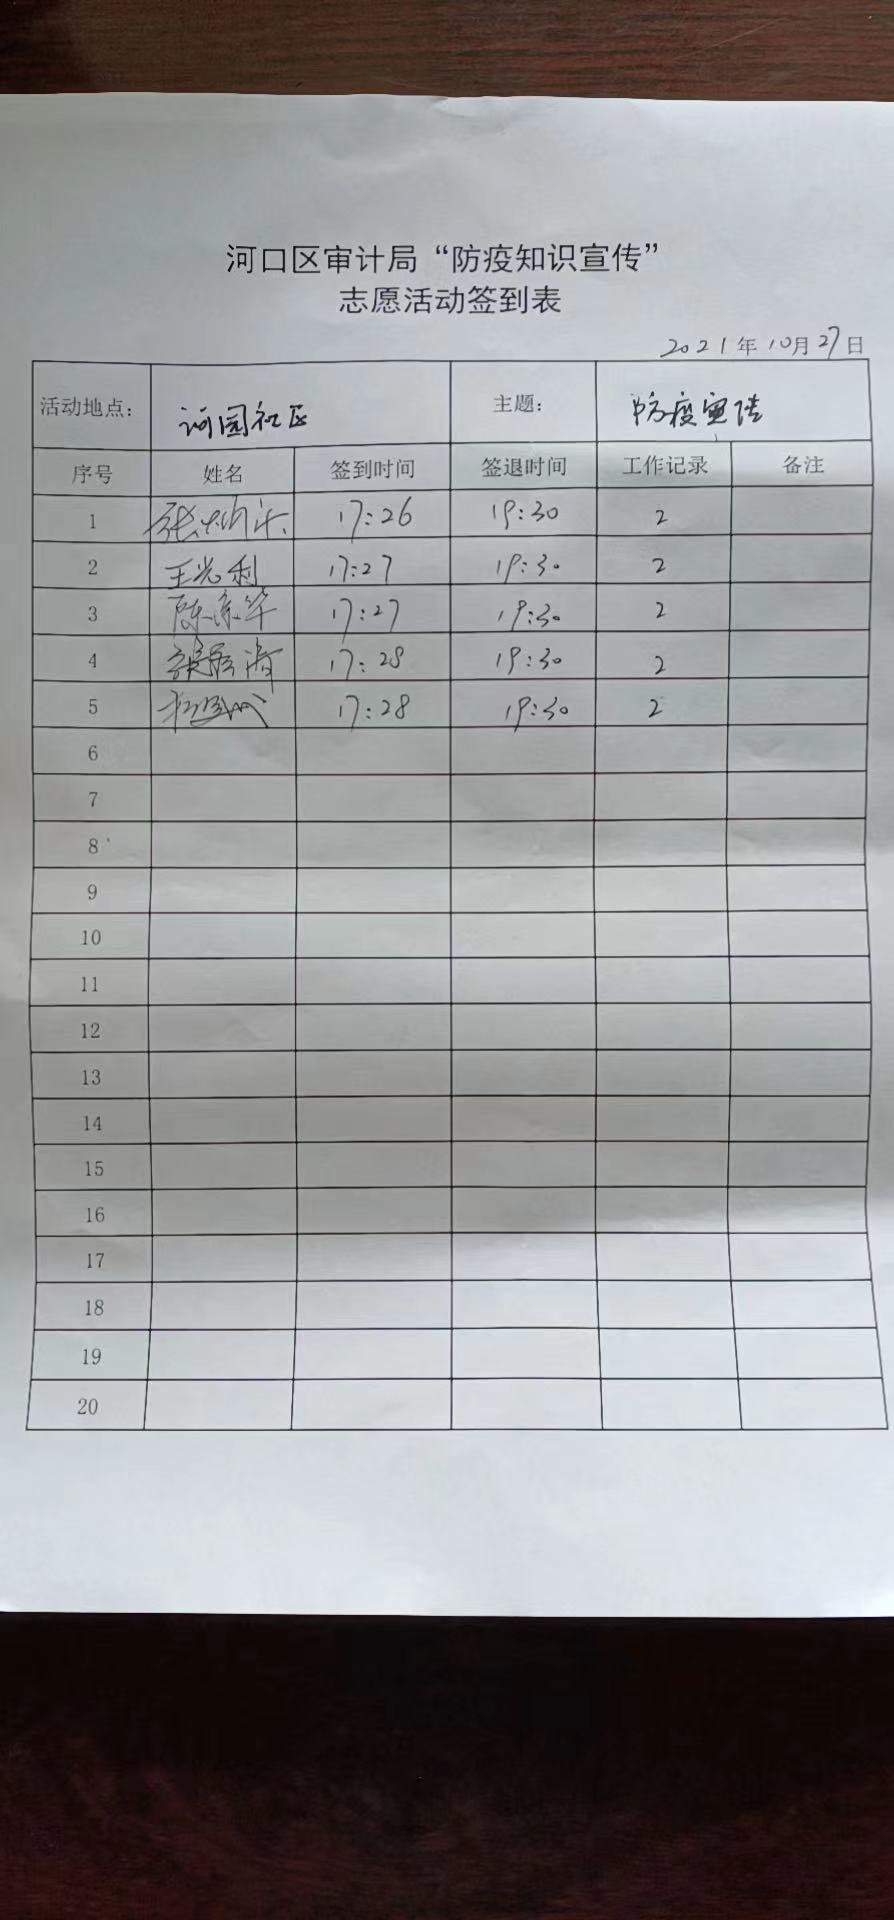 河口区审计局“防疫知识宣传”
志愿活动签到表
2021年10月27日
活动地点： 河园社区 主题： 防疫宣传
序号 姓名 签到时间 签退时间 工作记录 备注
1 17:26 19:30 2
2 王光利 17:27 19:30 2
3 17:27 19:30 2
4 17:28 19:30 2
5 17:28 19:30 2
6
7
8
9
10
11
12
13
14
15
16
17
18
19
20